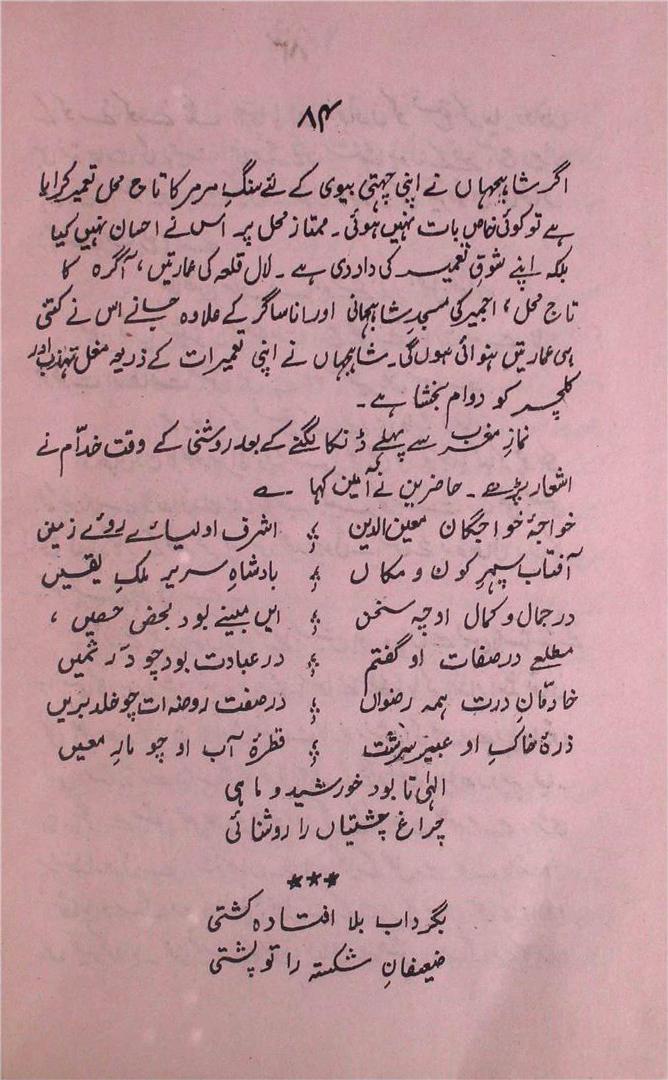 ۸۴
اگر شاہجہاں نے اپنی چہتی بیوی کے لئے سنگِ مرمر کا تاج محل تعمیر کرایا
ہے تو کوئی خاص بات نہیں ہوئی ۔ ممتاز محل پر اس نے احسان نہیں کیا
بلکہ اپنے شوقِ تعمیر کی داد دی ہے ۔ لال قلعہ کی عمارتیں ، آگرہ کا
تاج محل ، اجمیر کی مسجدِ شاہجہانی اور اناساگر کے علاوہ جانے اس نے کتنی
ہی عمارتیں بنوائی ہوں گی ۔ شاہجہاں نے اپنی تعمیرات کے ذریعہ مغل تہذیب اور
کلچر کو دوام بخشا ہے ۔
نمازِ مغرب سے پہلے ڈنکا بجنے کے بعد روشنی کے وقت خدّام نے
اشعار پڑھے ۔ حاضرین نے آمین کہا ۔ ے
خواجۂ خواجگان معین الدین ؛ اشرف اولیائے روئے زمیں
آفتاب سپہرِ کون و مکاں ؛ بادشاہِ سریرِ ملکِ یقیں
در جمال و کمال او چہ سخن ؛ ایں مبینے بود بحصنِ حصیں ،
مطلعے در صفات او گفتم ؛ در عبادت بود چو دّر ثمیں
خادمانِ درت ہمہ رضواں ؛ در صفت روضہ ات چو خلد بریں
ذرۂ خاکِ او عبیر سرشت ؛ قطرۂ آب او چو ماءِ معیں
الہٰی تا بود خورشید و ماہی
چراغ چشتیاں را روشنائی
***
بگرداب بلا افتادہ کشتی
ضعیفانِ شکستہ را تو پشتی